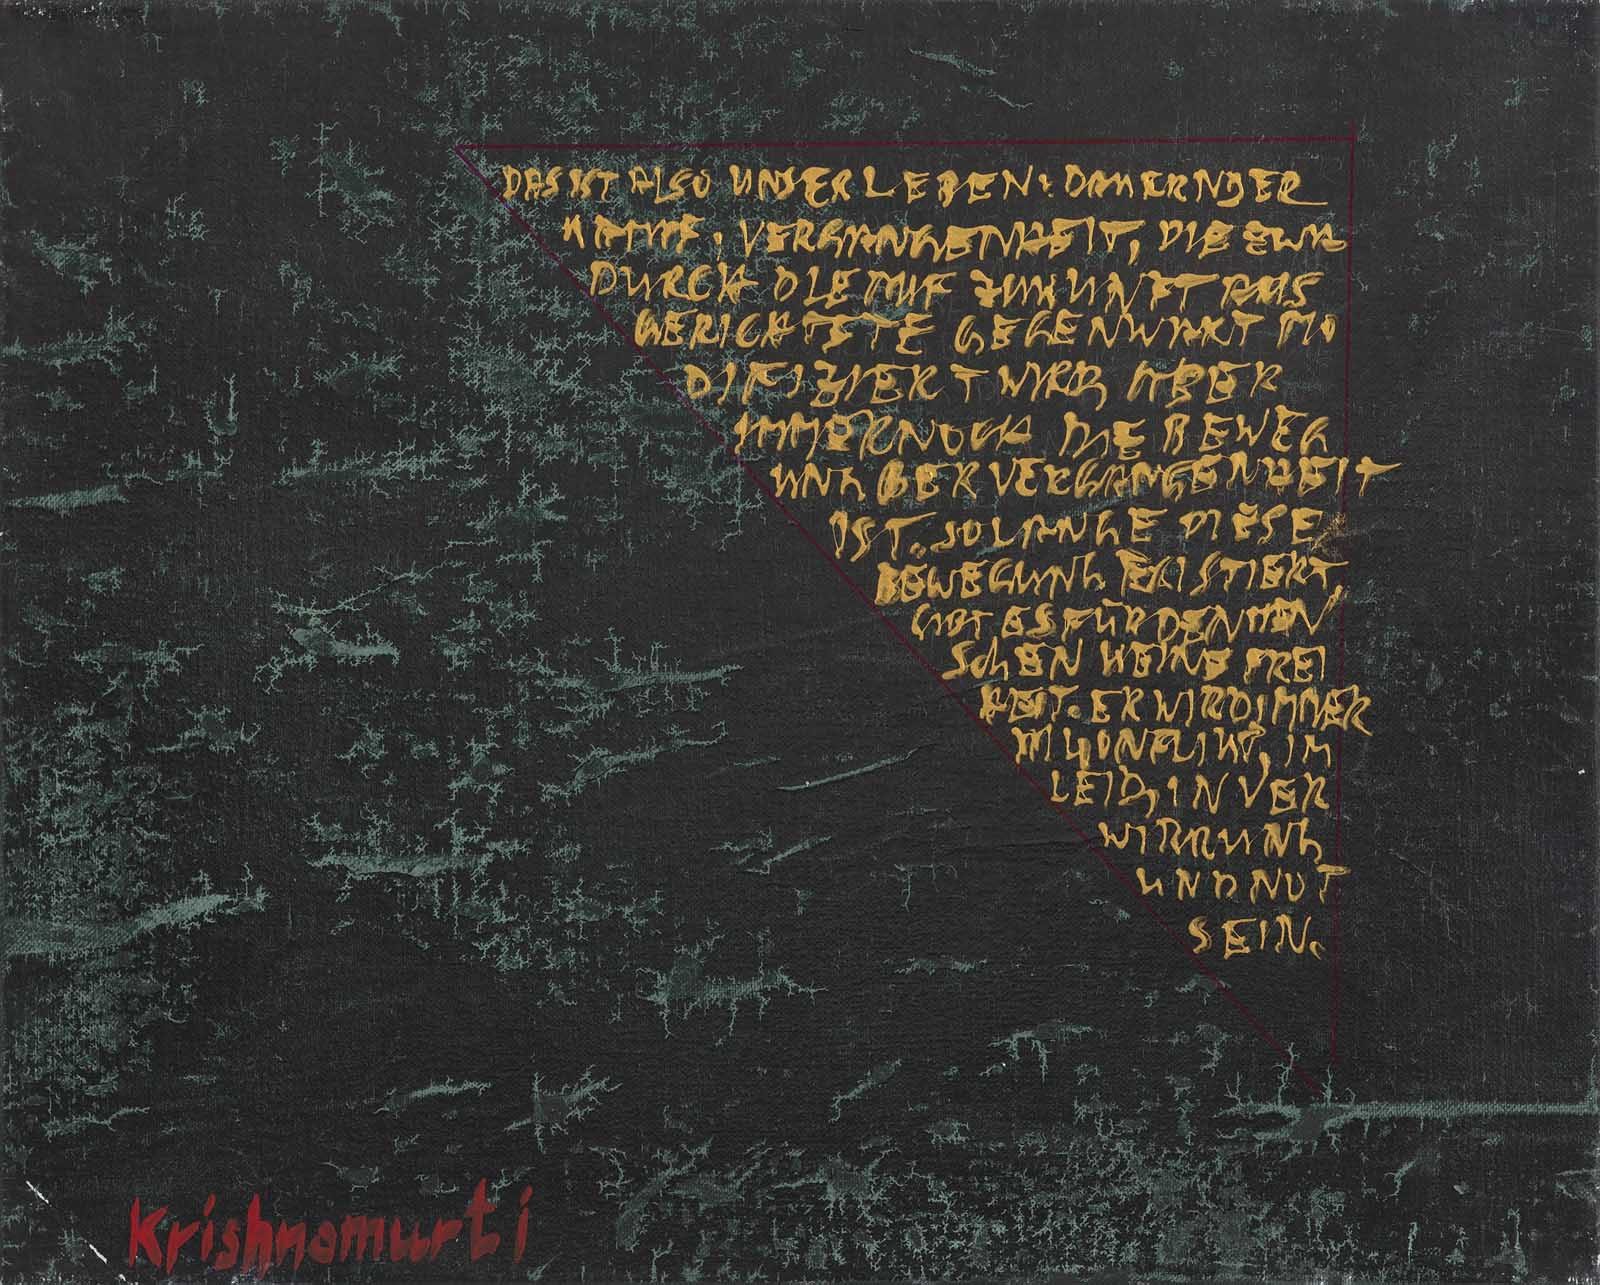 DAS IST ALSO UNSER LEBEN: DAUERNDER
KAMPF, VERGANGENHEIT, DIE ZWAR
DURCH DIE AUF ZUKUNFT AUS
GERICHTETE GEGENWART MO
DIFIZIERT WIRD, ABER
IMMER NOCH DIE BEWEG
UNG DER VERGANGENHEIT
IST. SOLANGE DIESE
BEWEGUNG EXISTIERT,
GIBT ES FÜR DEN MEN
SCHEN KEINE FREI
HEIT. ER WIRD IMMER
IM KONFLIKT, IM
LEID, IN VER
WIRRUNG
UND NOT
SEIN.
Krishnamurti